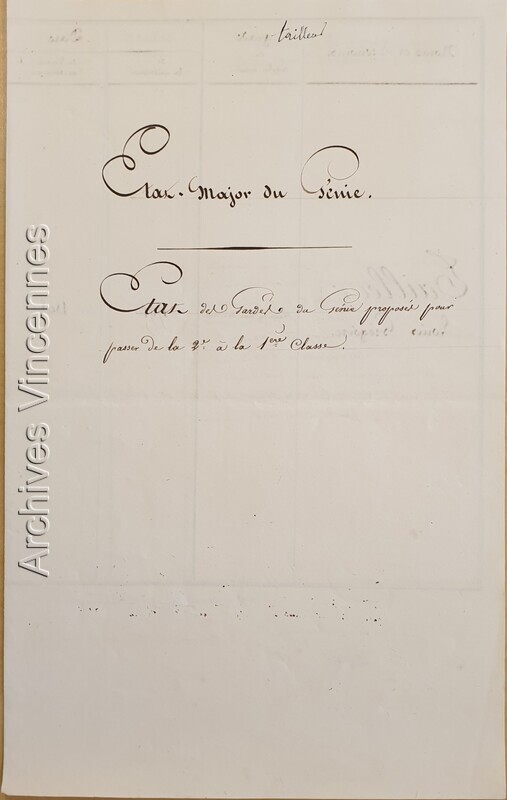 tailleur
Etat-Major du Génie.
Etat des Gardes du Génie proposés pour
passer de la 2e à la 1ère Classe.
Archives Vincennes